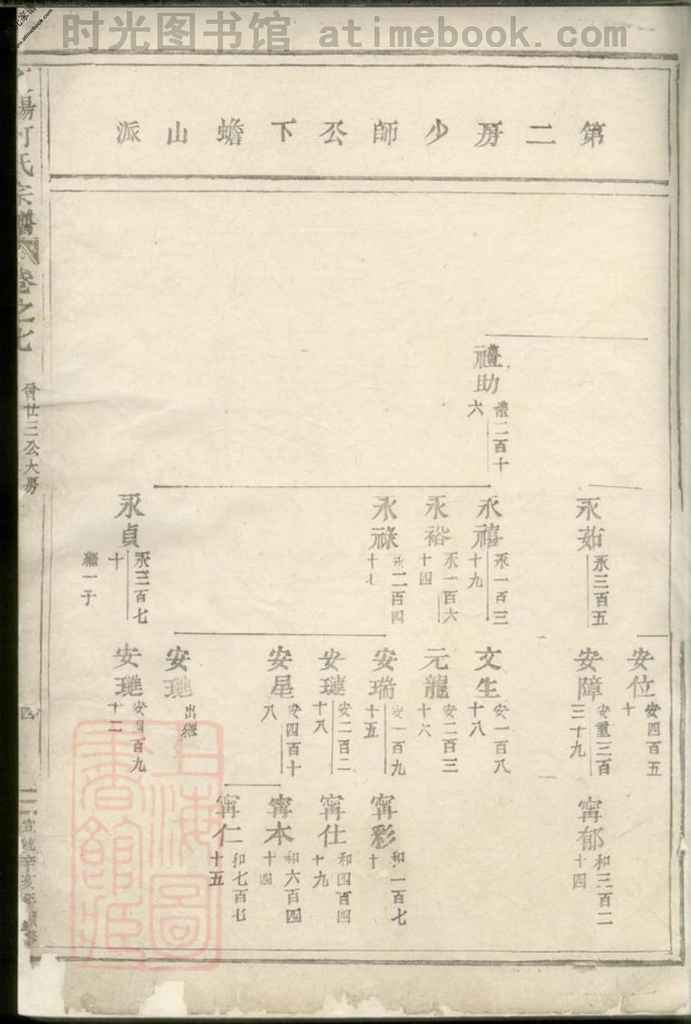 时光图书馆 atimebook.com
第二房少師公下蟾山派
氏宗譜
卷之七
曾廿三公大房
禮助
禮二百十
六
永茹
永三百五
永禧
永一百三
十九
永裕
永一百六
十四
永祿
永二百四
十七
永貞
永三百七
十
繼一子
安位
安四百五
十
安障
安重三百
三十九
文生
安一百八
十八
元龍
安二百三
十六
安瑞
安一百九
十五
安璉
安二百二
十八
安星
安四百十
八
安璁
出繼
安璁
安四百九
十二
甯郁
和三百二
十四
甯彩
和一百七
十
甯仕
和四百四
十九
甯本
和六百四
十四
甯仁
和七百七
十五
宣統辛亥年
上海圖書館藏